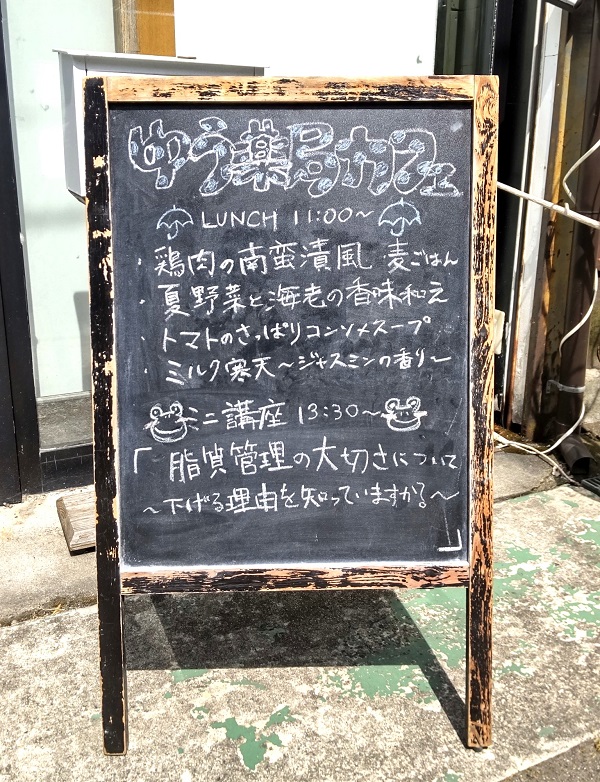 ゆう薬局カフェ
LUNCH 11:00～
・鶏肉の南蛮漬風 麦ごはん
・夏野菜と海老の香味和え
・トマトのさっぱりコンソメスープ
・ミルク寒天～ジャスミンの香り～
ミニ講座 13:30～
「脂質管理の大切さについて
～下げる理由を知っていますか?～
」